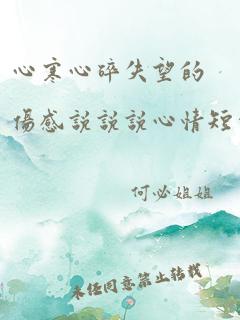 心寒心碎失望的
傷感説説説心情短
何必姐姐
未经同意禁止转载